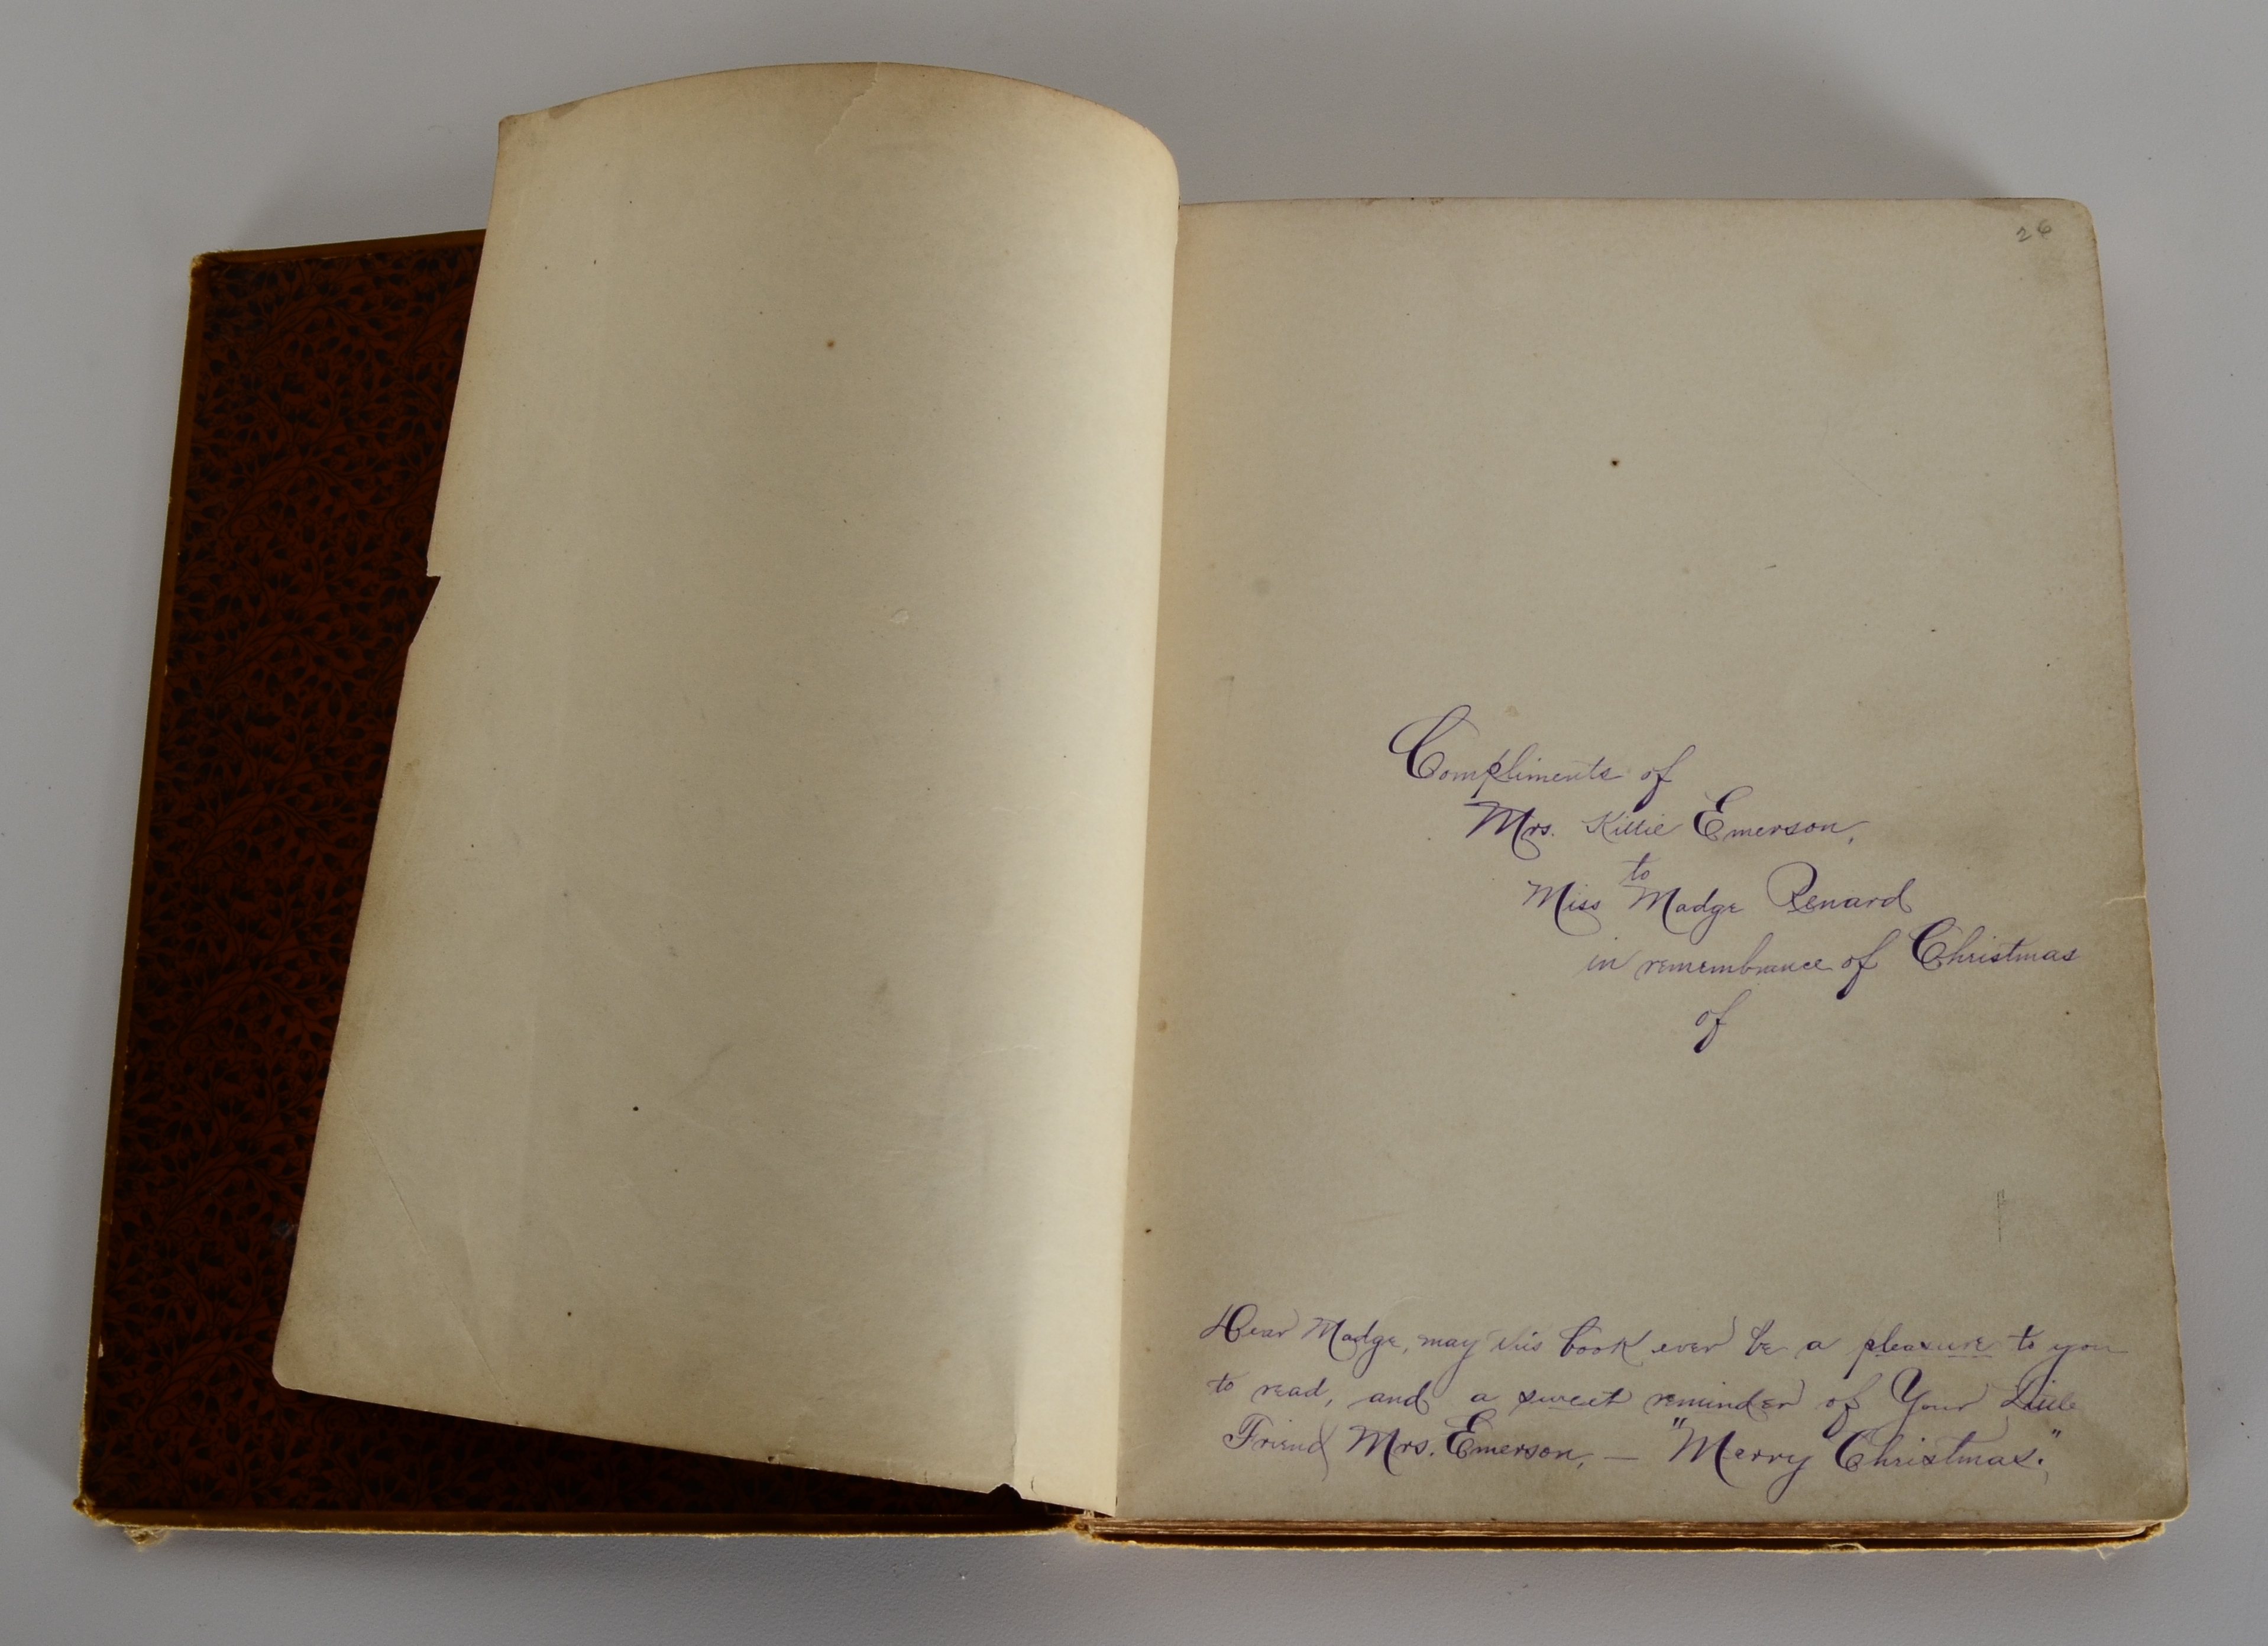 26
Compliments of
Mrs. Kittie Emerson,
to
Miss Madge Renard
in remembrance of Christmas
of
Dear Madge, may this book ever be a pleasure to you
to read, and a sweet reminder of Your Little
Friend Mrs. Emerson, — "Merry Christmas."